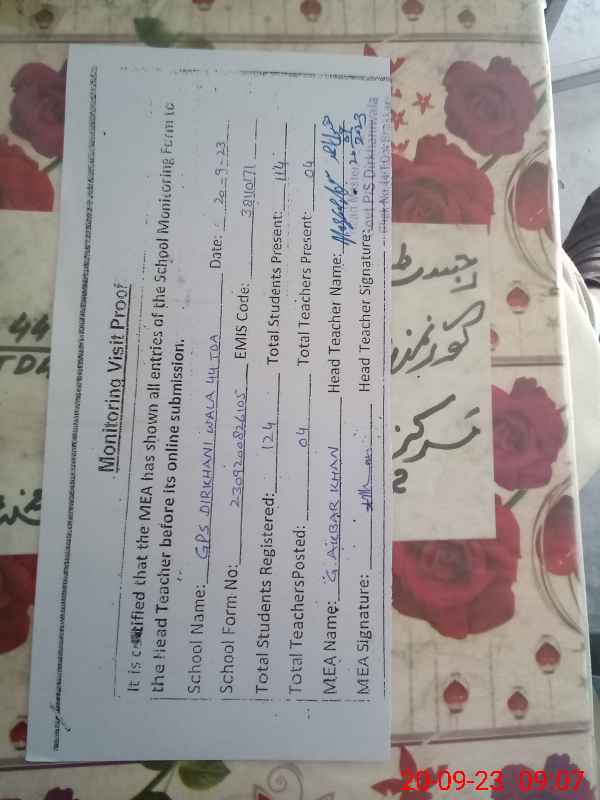 Monitoring Visit Proof
It is certified that the MEA has shown all entries of the School Monitoring Form to
the Head Teacher before its online submission.
School Name: GPS DIRKHANI WALA 44 TDA Date: 20-9-23
School Form No: 2309200826105 EMIS Code:
Total Students Registered: 124 Total Students Present: 114
Total TeachersPosted: 04 Total Teachers Present: 04
MEA Name: G. AKBAR KHAN Head Teacher Name:
MEA Signature: Head Teacher Signature:
44
TDA
رجسٹر
20-09-23 09:07